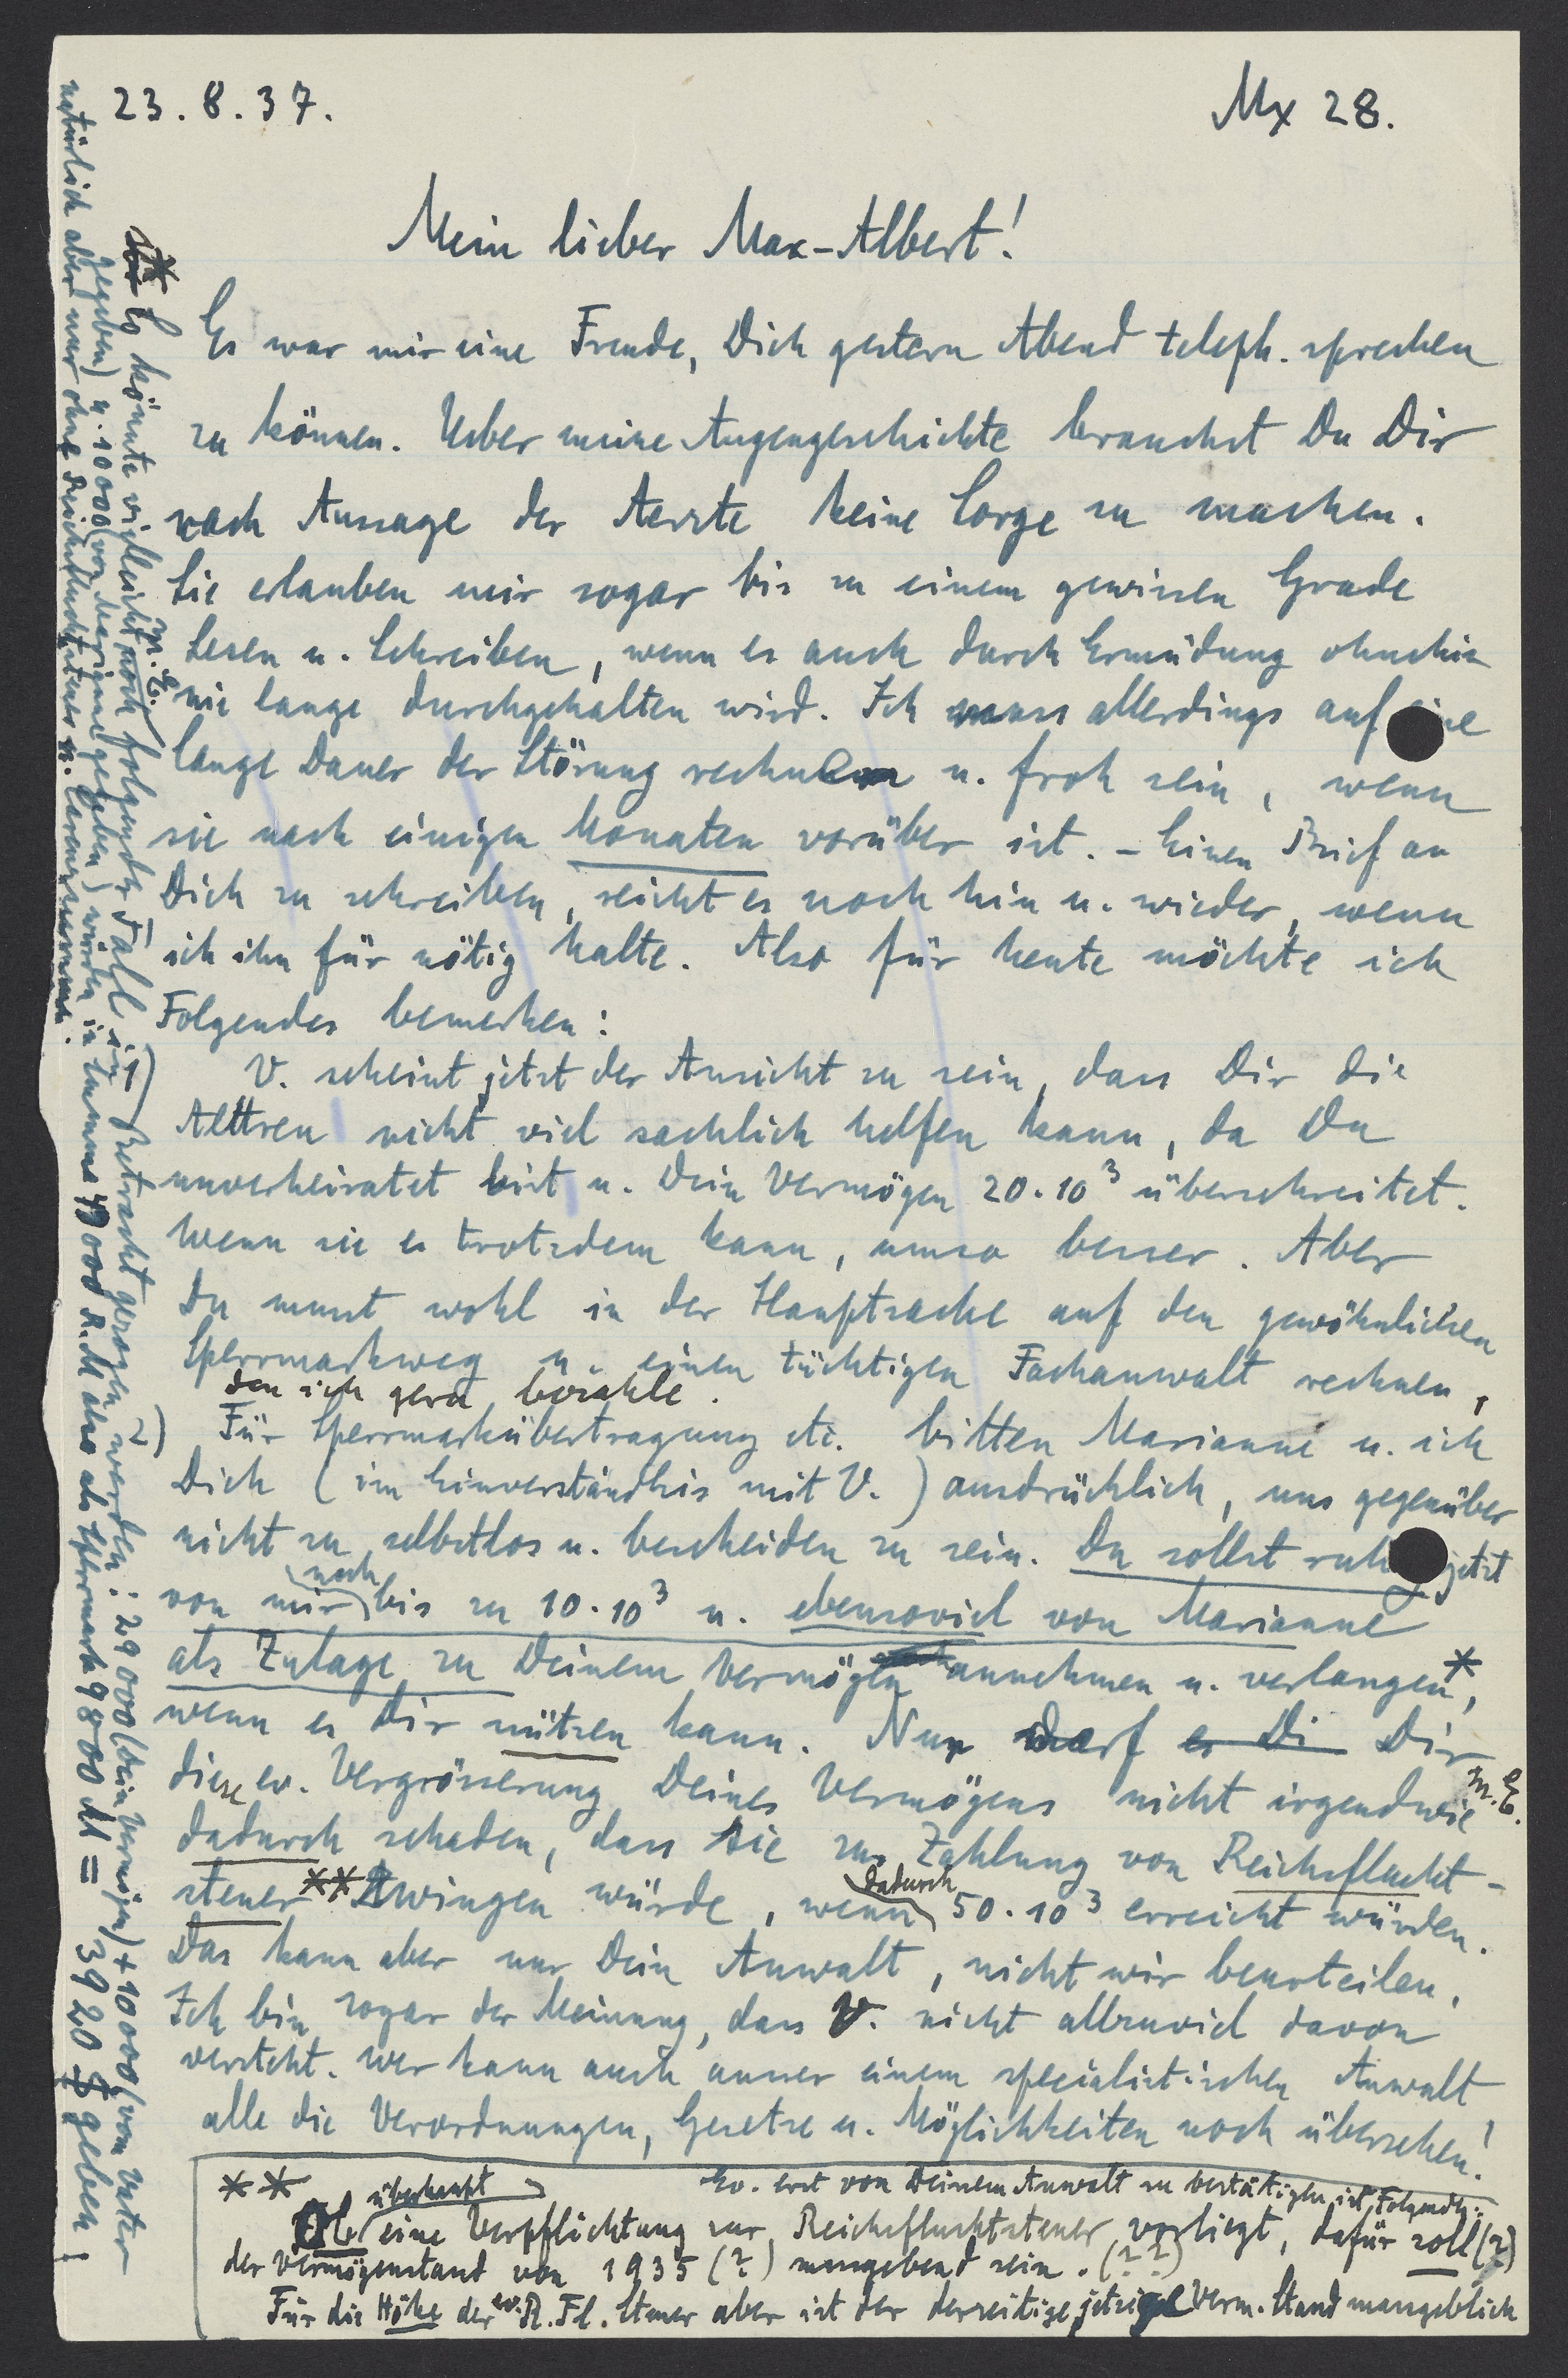 23.8.37.
Mx 28.
Mein lieber Max-Albert!
Es war mir eine Freude, Dich gestern Abend teleph. sprechen
zu können. Ueber meine Augengeschichte brauchst Du Dir
nach Aussage der Aerzte keine Sorge zu machen.
Sie erlauben mir sogar bis zu einem gewissen Grade
Lesen u. Schreiben, wenn es auch durch Ermüdung ohnehin
nie lange durchgehalten wird. Ich muss allerdings auf eine
lange Dauer der Störung rechnen u. froh sein, wenn
sie nach einigen Monaten vorüber ist. - Einen Brief an
Dich zu schreiben, reicht es noch hin u. wieder, wenn
ich ihn für nötig halte. Also für heute möchte ich
Folgendes bemerken:
1) V. scheint jetzt der Ansicht zu sein, dass Dir die
Altreu nicht viel sachlich helfen kann, da Du
unverheiratet bist u. Dein Vermögen 20.10³ überschreitet.
Wenn sie es trotzdem kann, umso besser. Aber
Du musst wohl in der Hauptsache auf den gewöhnlichen
Sperrmarkweg u. einen tüchtigen Fachanwalt rechnen,
den ich gern bezahle.
2) Für Sperrmarkübertragung etc. bitten Marianne u. ich
Dich (im Einverständnis mit V.) ausdrücklich, uns gegenüber
nicht zu selbstlos u. bescheiden zu sein. Du sollst ruhig jetzt
von mir noch bis zu 10.10³ u. ebensoviel von Marianne
als Zulage zu Deinem Vermögen annehmen u. verlangen*,
wenn es Dir nützen kann. Nur darf es Di Dir
diese ev. Vergrösserung Deines Vermögens nicht irgendwie m.E.
dadurch schaden, dass sie zur Zahlung von Reichsflucht-
steuer** zwingen würde, wenn dadurch 50.10³ erreicht würden.
Das kann aber nur Dein Anwalt, nicht wir beurteilen.
Ich bin sogar der Meinung, dass V. nicht allzuviel davon
versteht. Wer kann auch ausser einem specialistischen Anwalt
alle die Verordnungen, Gesetze u. Möglichkeiten noch übersehen!
** Ev. erst von Deinem Anwalt zu bestätigen ist Folgendes:
Ob überhaupt eine Verpflichtung zur Reichsfluchtsteuer vorliegt, dafür soll (?)
der Vermögenstand von 1935 (?) massgebend sein. (??)
Für die Höhe der ev. R.Fl. Steuer aber ist der derzeitige jetzige Verm. Stand massgeblich
* Es könnte vielleicht m.E. noch folgender Fall in Betracht gezogen werden: 29000 (Dein Vermögen) + 10000 (vom Vater
gegeben) u. 10000 (von Marianne gegeben) würden in Summe 49000 R.M also als Sperrmark 9800 M = 3920 $ geben!
natürlich aber nur ohne Reichsfluchtsteuer